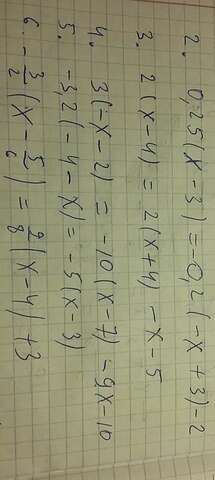 2. 0,25(x-3)=-0,2(-x+3)-2
3. 2(x-4)=2(x+4)-x-5
4. 3(-x-2)=-10(x-7)-9x-10
5. -3,2(-4-x)=-5(x-3)
6. -3/2(x-5/6)=9/8(x-4)+3